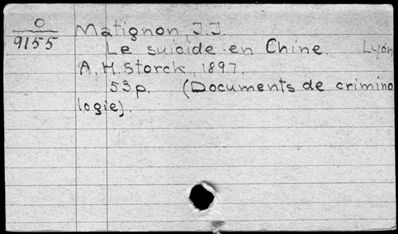 O
9155
Matignon, J.J.
Le suicide en Chine. Lyon
A. H. Storck, 1897.
53p. (Documents de crimino
logie).